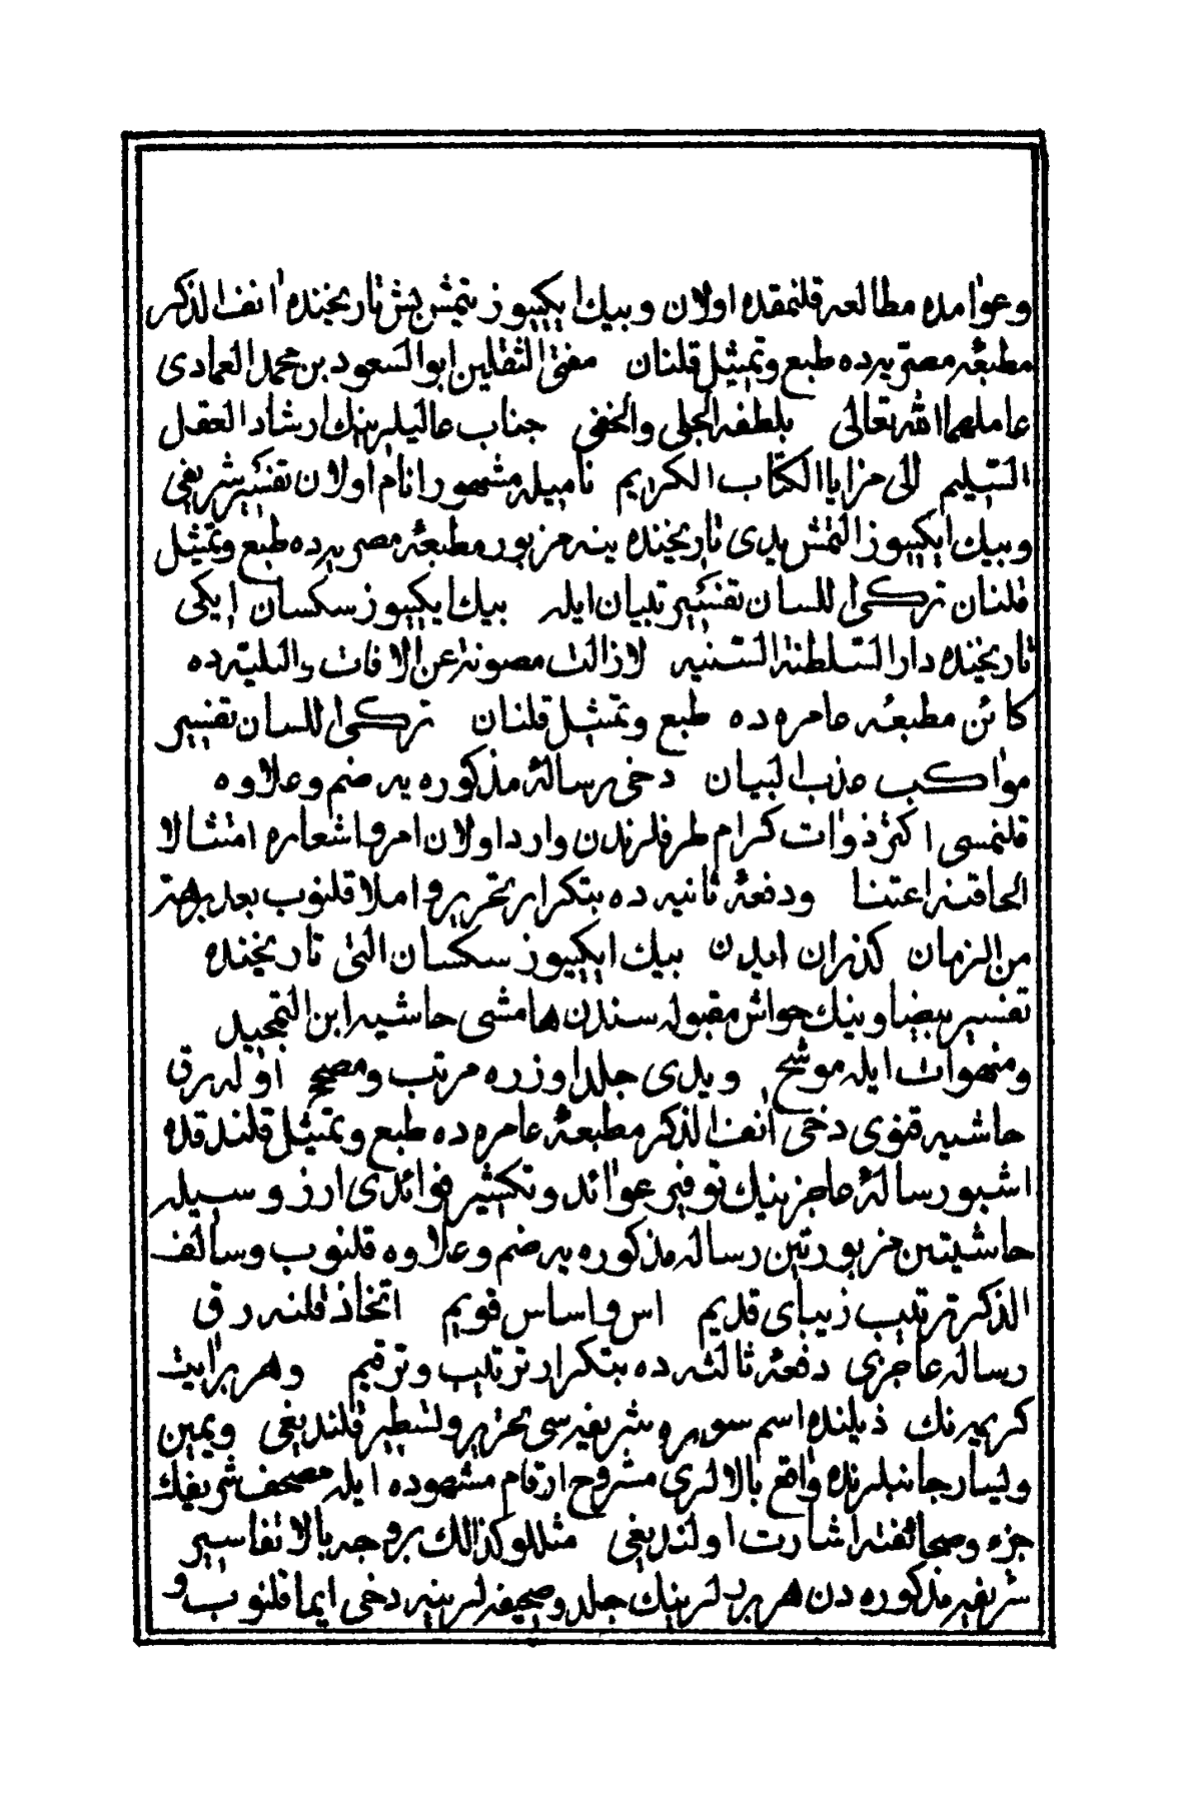 وعوامده مطالعه قلنمقده اولان وبيك ايكيوز يتمش بش تاريخنده انف الذكر
مطبعۀ مصريه ده طبع وتمثيل قلنان مفتى الثقلين ابو السعود بن محمد العمادى
عاملهما الله تعالى بلطفه الجلى والخفى جناب عاليلرينك ارشاد العقل
السليم الى مزايا الكتاب الكريم ناميله مشهور انام اولان تفسير شريفى
وبيك ايكيوز التمش يدى تاريخنده ينه مزبور مطبعۀ مصريه ده طبع وتمثيل
قلنان تركى اللسان تفسير تبيان ايله بيك ايكيوز سكسان ايكى
تاريخنده دار السلطنة السنيه لازالت مصونة عن الافات والبليه ده
كائن مطبعۀ عامره ده طبع وتمثيل قلنان تركى اللسان تفسير
مواكب عذب البيان دخى رسالۀ مذكوره يه ضم وعلاوه
قلنمسى اكثر ذوات كرام طرفلرندن وارد اولان امر واشعاره امتثالا
الحاقنه اعتنا ودفعۀ ثانيه ده بتكرار تحرير واملا قلنوب بعد برهة
من الزمان كذران ايدن بيك ايكيوز سكسان التى تاريخنده
تفسير بيضاوينك حواشى مقبوله سندن هامشى حاشيه ابن التمجيد
ومنهوات ايله موشح ويدى جلد اوزره مرتب ومصحح اوله رق
حاشيه قنوى دخى انف الذكر مطبعۀ عامره ده طبع وتمثيل قلندقده
اشبو رسالۀ عاجزينك توفير عوائد وتكثير فوائدى ارزوسيله
حاشيتين مزبورتين رساله مذكوره يه ضم وعلاوه قلنوب وسالف
الذكر ترتيب زيباى قديم اس واساس قويم اتخاذ قلنه رق
رساله عاجزى دفعۀ ثالثه ده بتكرار ترتيب وترقيم وهر برايت
كريمه نك ذيلنده اسم سوره شريفه سى تحرير وتسطير قلنديغى ويمين
ويسار جانبلرنده واقع بالالرى مشروح ارقام مشهوده ايله مصحف شريفك
جزء وصحائفنه اشارت اولنديغى مثللو كذالك بروجه بالا تفاسير
شريفه مذكوره دن هر بر لرينك جلد وصحيفه لرينه دخى ايما قلنوب و